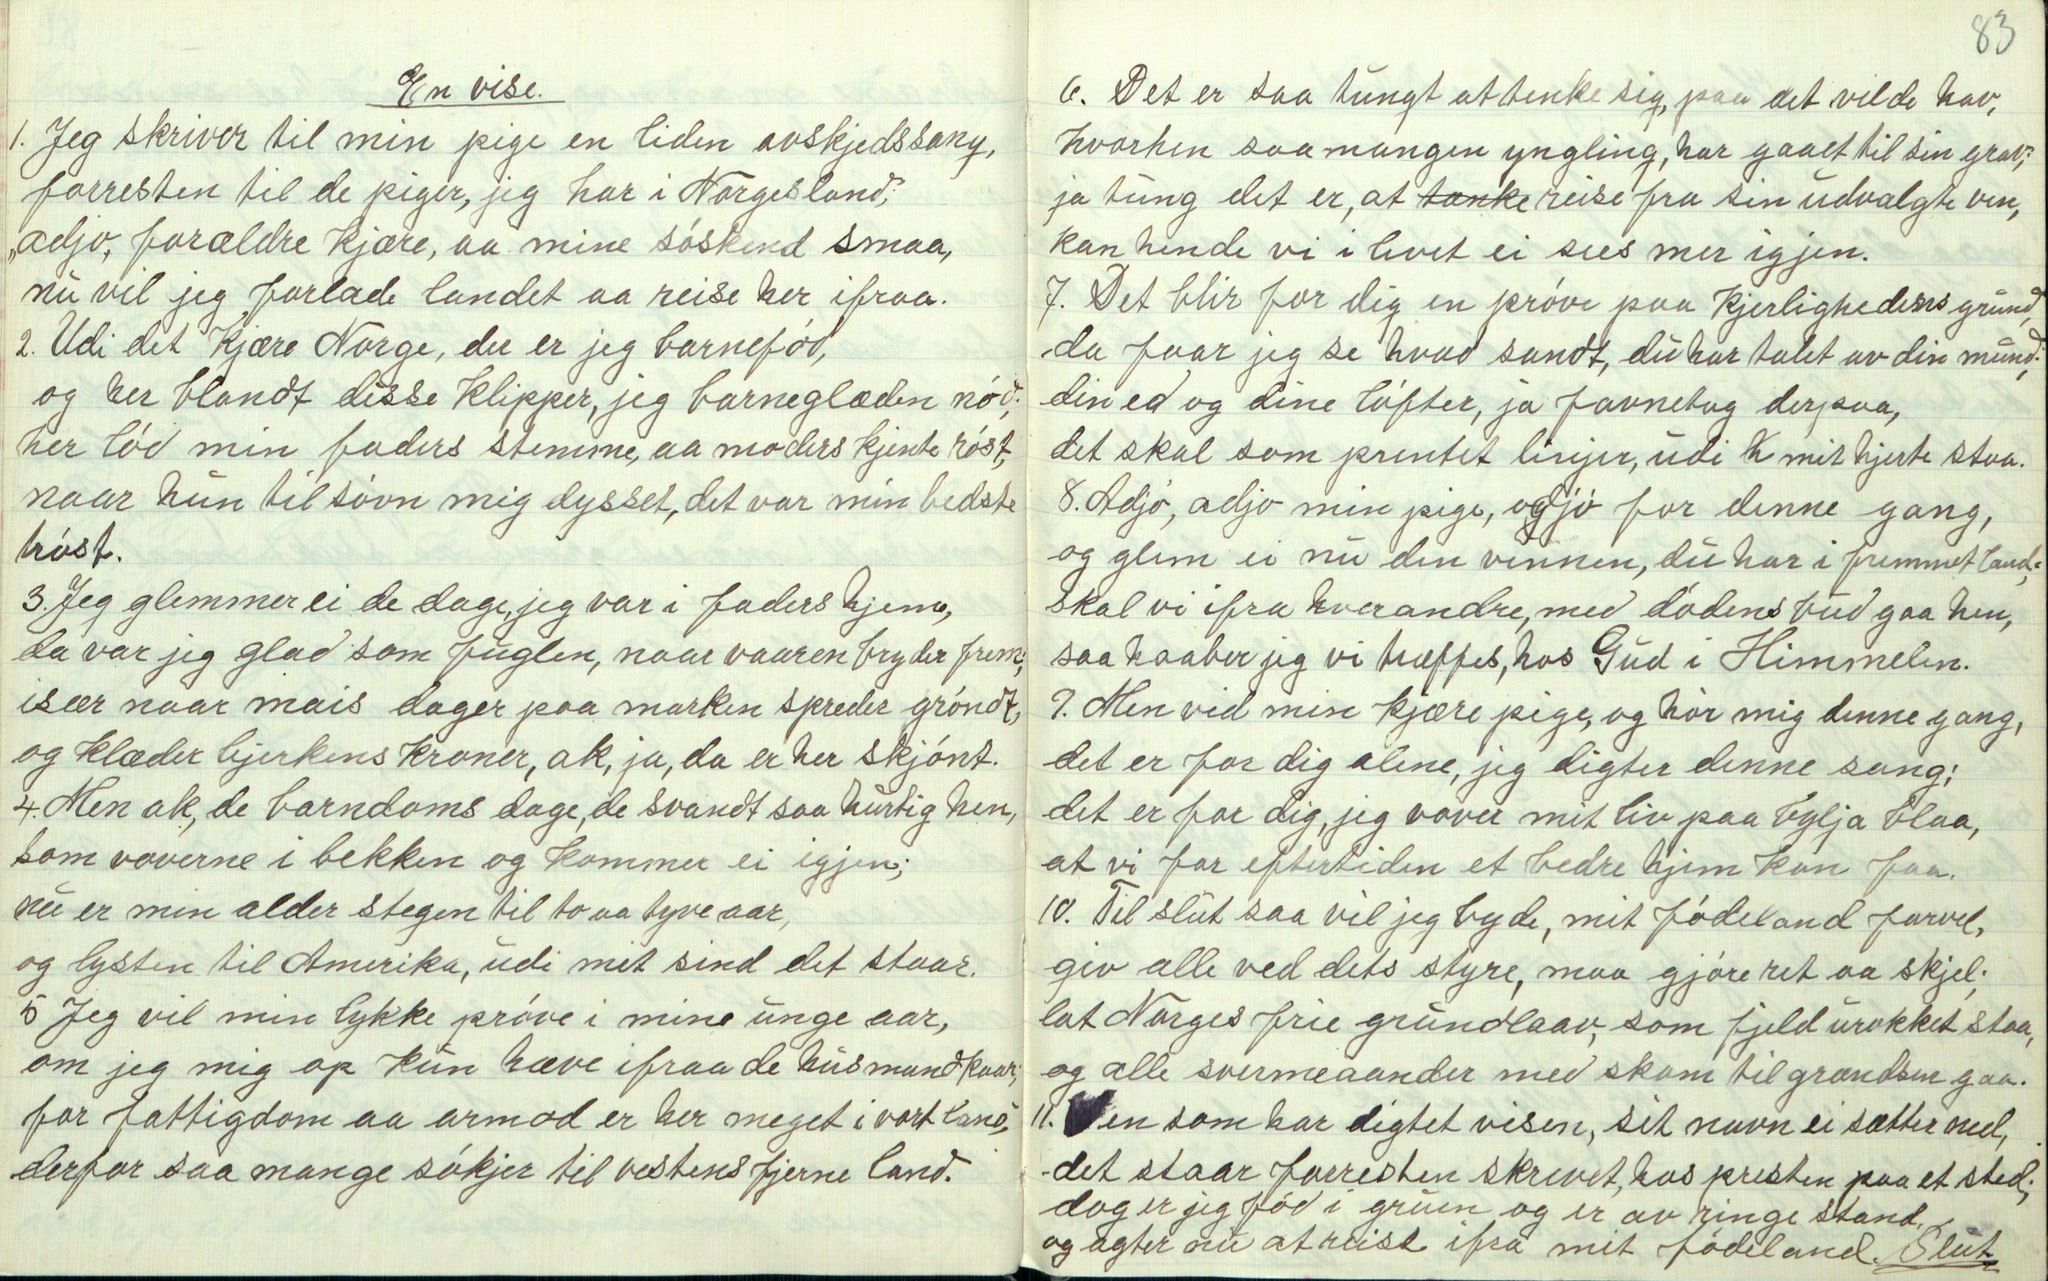 En vise.
1. Jeg skriver til min pige en liden avskjedssang,
forresten til de piger, jeg har i Norgesland;
„adjo, forældre kjære, aa mine sóskend smaa,
nu vil jeg forlade landet aa reise her ifraa.
2. Udi det kjære Norge, der er jeg barnefód,
og her blandt disse klipper, jeg barneglæden nód;
her lód min faders stemme, aa moders kjente róst,
naar hun til sóvn mig dysset, det var min bedste
tróst.
3. Jeg glemmer ei de dage, jeg var i faders hjem,
da var jeg glad som fuglen, naar vaaren bryder frem;
især naar mais dager paa marken spreder gróndt,
og klæder bjerkens kroner, ak, ja, da er her skjónt.
4. Men ak, de barndoms dage, de svandt saa hurtig hen,
som voverne i bekken og kommer ei igjen;
nu er min alder stegen til to aa tyve aar,
og lysten til Amerika, udi mit sind det staar.
5 Jeg vil min lykke próve i mine unge aar,
om jeg mig op kun hæve ifraa de husmandkaar;
for fattigdom aa armod er her meget i vort land,
derfor saa mange sókjer til vestens fjerne land.
83
6. Det er saa tungt at tenke sig, paa det vilde hav,
hvorhen saamangen yngling, har gaaet til sin grav;
ja tung det er, at tanke reise fra sin udvalgte ven,
kan hende vi i livet ei sees mer igjen.
7. Det blir for dig en próve paa kjerlighedens grund,
da faar jeg se hvad sandt, du har talet av din mund;
din ed og dine lófter, ja favnetag derpaa,
det skal som prentet linjer, udi h mit hjerte staa.
8. Adjó, adjo min pige, adjó for denne gang,
og glem ei nu den vennen, du har i fremmet land;
skal vi ifra hverandre, med dódens bud gaa hen,
saa haaber jeg vi træffes, hos Gud i Himmelen.
9. Men vid min kjære pige, og hór mig denne gang,
det er for dig alene, jeg digter denne sang;
det er for dig, jeg vover mit liv paa bylja blaa,
at vi for eftertiden et bedre hjem kan faa.
10. Til slut saa vil jeg byde, mit fódeland farvel,
giv alle ved dets styre, maa gjóre ret aa skjel;
lat Norges frie grundlaav, som fjeld urokket staa,
og alle svermeaander med skam til grændsen gaa.
11. Den som har digtet visen, sit navn ei sætter ned,
det staar forresten skrevet, hos presten paa et sted;
dog er jeg fód i gruen og er av ringe stand,
og agter nu at reise ifra mit fódeland. Slut